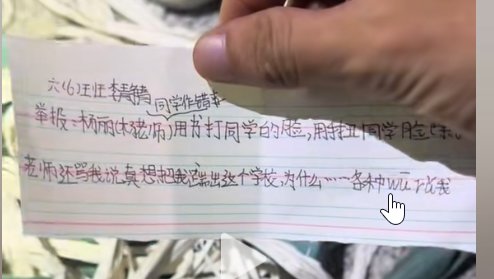 六(6)班 李
同学作错事
举报~杨丽(木兹师)用书打同学的脸,用手扯同学脸
老师还骂我说真想把我踹出这个学校,为什么……各种wū我